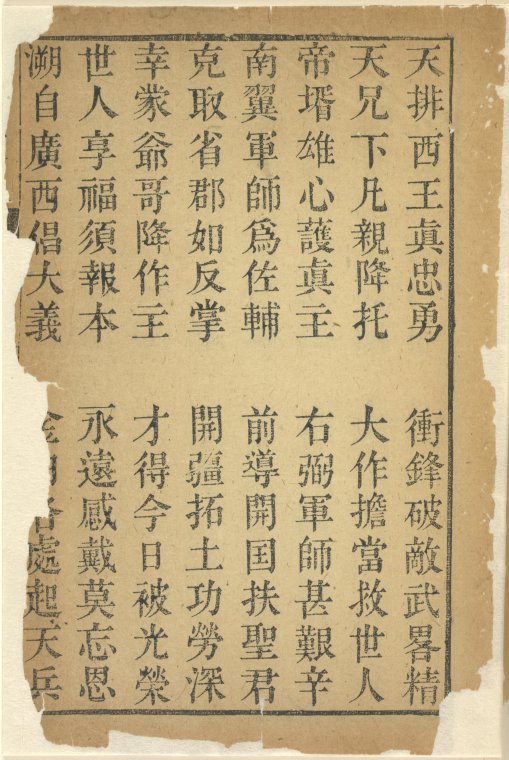 天排西王眞忠勇 衝鋒破敵武畧精
天兄下凡親降托 大作擔當救世人
帝壻雄心護眞主 右弼軍師甚艱辛
南翼軍師爲佐輔 前導開囯扶聖君
克取省郡如反掌 開疆拓土功勞深
幸蒙爺哥降作主 才得今日被光榮
世人享福須報本 永遠感戴莫忘恩
溯自廣西倡大義 金田各處起天兵